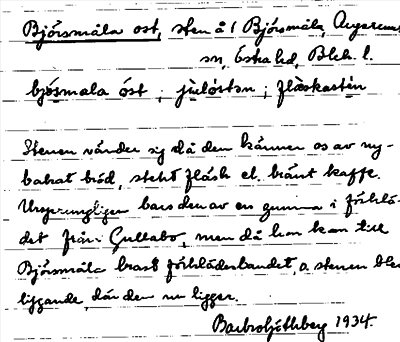 Björsmåla ost, sten å i Björsmåla, Augerums
sn, Östra hd, Blek. l.
bjösmala óst ; júlóstan ; fláskastén
Stenen vänder sig då den känner os av ny-
bakat bröd, stekt fläsk el. bränt kaffe.
Ursprungligen bars den av en gumma i förklä-
det från Gullabo, men då hon kom till
Björsmåla brast förklädesbandet, o stenen blev
liggande, där den nu ligger.
1934.